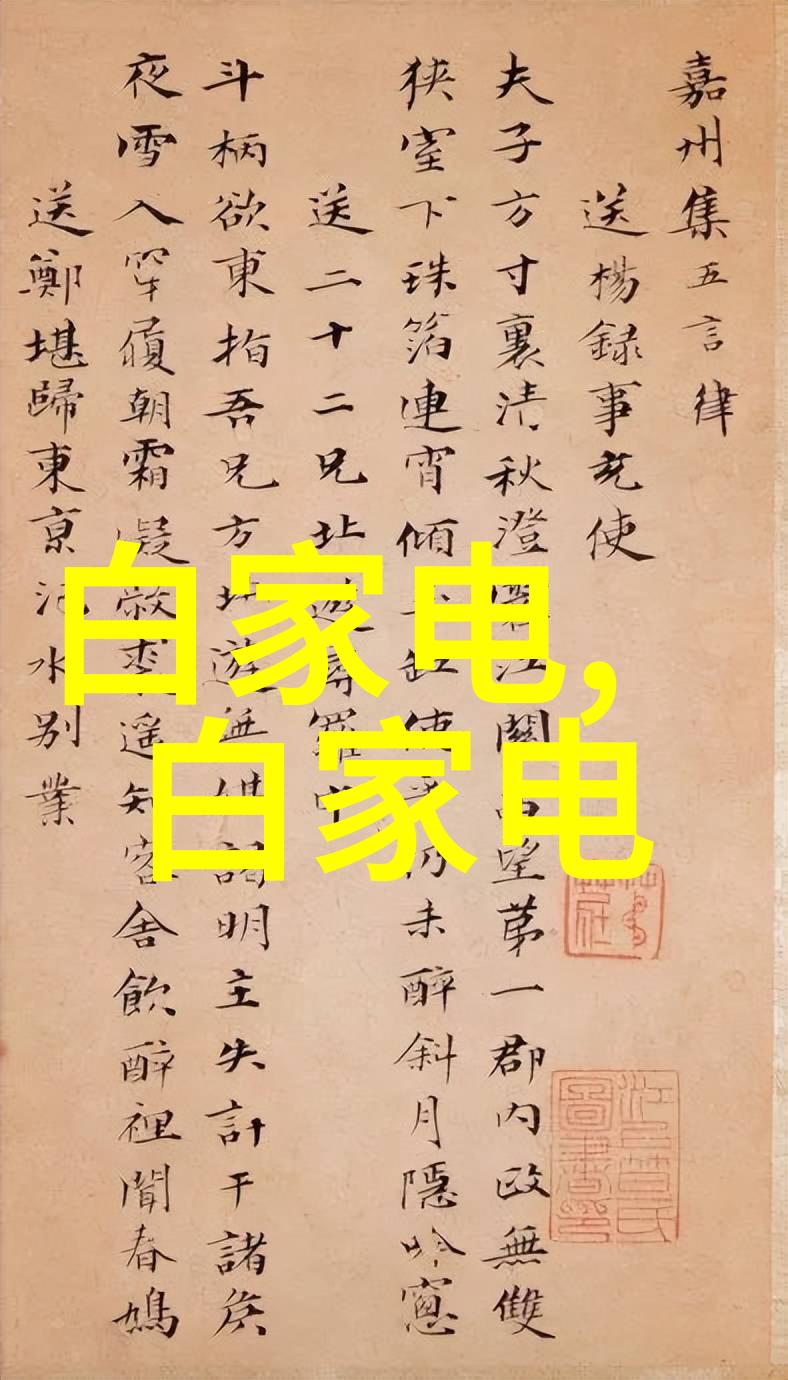 嘉州集五言律
送楊録事充使
夫子方寸裏清秋澄霽江關西望第一郡内政無雙
狹室下珠箔連宵傾玉缸使乎仍未醉斜月隱吟窻
送二十二兄北遊尋羅中
斗柄欲東指吾兄方北遊無媒謁明主失計干諸侯
夜雪入穿履朝霜凝敝裘遥知客舍飲醉裡聞春鳩
送鄭堪歸東京汜水别業
白家电,
白家电